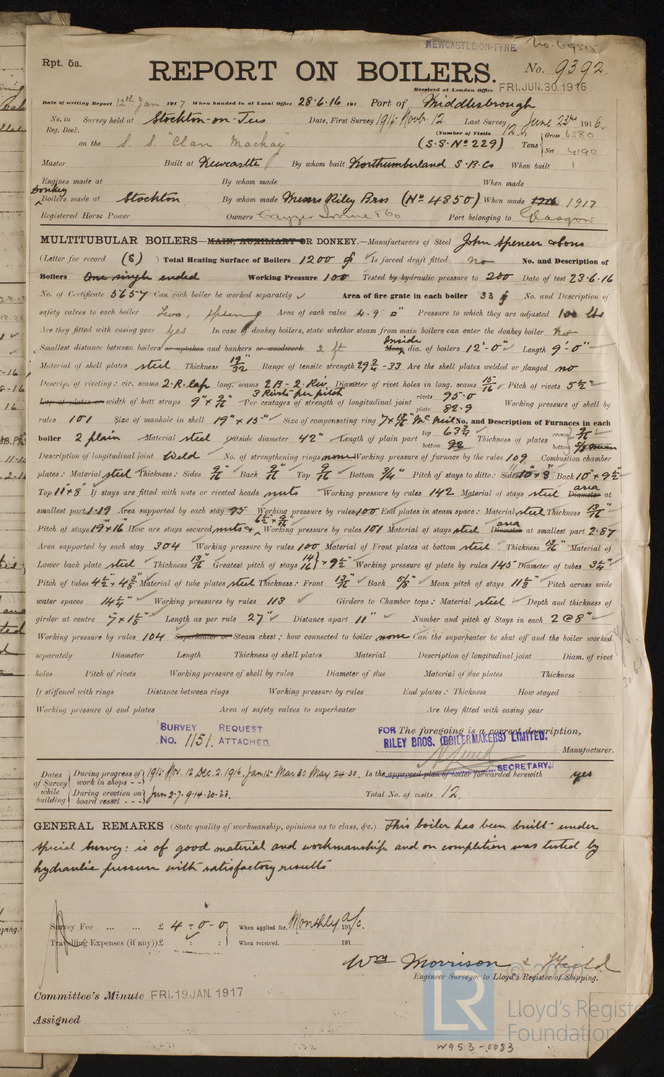 NEWCASTLE-ON-TYNE No. 69515
Rpt. 5a.
REPORT ON BOILERS.
No. 9392.
Received at London Office FRI. JUN. 30. 1916
Date of writing Report 12th Jan 1917 When handed in at Local Office 28.6.16 191 Port of Middlesbrough
No. in Reg. Book. Survey held at Stockton-on-Tees Date, First Survey 1915 Novr. 12 Last Survey June 23rd 1916.
(Number of Visits 12.)
on the S.S. "Clan Mackay" (S.S. No 229) Tons Gross 6380 Net 4190
Master Built at Newcastle By whom built Northumberland S.B.Co When built
Engines made at By whom made When made
Donkey Boilers made at Stockton By whom made Messrs Riley Bros (No 4850) When made 1916 1917
Registered Horse Power Owners Cayzer Irvine & Co Port belonging to Glasgow
MULTITUBULAR BOILERS MAIN, AUXILIARY OR DONKEY.—Manufacturers of Steel John Spencer & Sons
(Letter for record (S) ) Total Heating Surface of Boilers 1200 Is forced draft fitted no No. and Description of
Boilers One single ended Working Pressure 100 Tested by hydraulic pressure to 200 Date of test 23.6.16
No. of Certificate 5657 Can each boiler be worked separately ✓ Area of fire grate in each boiler 33 No. and Description of
safety valves to each boiler Two, spring Area of each valve 4.9 Pressure to which they are adjusted
Are they fitted with easing gear yes In case of donkey boilers, state whether steam from main boilers can enter the donkey boiler no
Smallest distance between boilers or uptakes and bunkers or woodwork 2 ft Inside Mean dia. of boilers 12'-0" Length 9'-0"
Material of shell plates steel Thickness 19/32 Range of tensile strength 29¾-33 Are the shell plates welded or flanged no
Descrip. of riveting: cir. seams 2-R-Lap long. seams 2 B-2 Riv. Diameter of rivet holes in long. seams 15/16 Pitch of rivets 5½"
3 Rivts per pitch
Lap of plates or width of butt straps 9" × 9/16" Per centages of strength of longitudinal joint rivets 95.0 plate 82.9 Working pressure of shell by
rules 101 Size of manhole in shell 19" × 15" Size of compensating ring McNeil No. and Description of Furnaces in each
boiler 2 plain Material steel Outside diameter 42" Length of plain part top 63¾ bottom 92 Thickness of plates crown 9/16" bottom
Description of longitudinal joint Weld No. of strengthening rings none Working pressure of furnace by the rules 109 Combustion chamber
plates: Material steel Thickness: Sides 9/16" Back 9/16" Top 9/16" Bottom ¾" Pitch of stays to ditto: Sides 10" × 8" Back 10" × 9½"
Top 11" × 8" If stays are fitted with nuts or riveted heads nuts Working pressure by rules 142 Material of stays steel area Diameter at
smallest part 1.19 Area supported by each stay 95 Working pressure by rules 100 End plates in steam space: Material steel Thickness
Pitch of stays 19" × 16" How are stays secured nuts & Working pressure by rules 101 Material of stays steel area Diameter at smallest part 2.87
Area supported by each stay 304 Working pressure by rules 100 Material of Front plates at bottom steel Thickness Material of
Lower back plate steel Thickness Greatest pitch of stays × 9½" Working pressure of plate by rules 145 Diameter of tubes 3½"
Pitch of tubes Material of tube plates steel Thickness: Front Back Mean pitch of stays Pitch across wide
water spaces 14¼" Working pressures by rules 113 Girders to Chamber tops: Material steel Depth and thickness of
girder at centre Length as per rule 27" Distance apart 11" Number and pitch of Stays in each 2 @ 8"
Working pressure by rules 104 Superheater or Steam chest: how connected to boiler none Can the superheater be shut off and the boiler worked
separately Diameter Length Thickness of shell plates Material Description of longitudinal joint Diam. of rivet
holes Pitch of rivets Working pressure of shell by rules Diameter of flue Material of flue plates Thickness
If stiffened with rings Distance between rings Working pressure by rules End plates: Thickness How stayed
Working pressure of end plates Area of safety valves to superheater Are they fitted with easing gear
SURVEY REQUEST
No. 1151. ATTACHED.
The foregoing is a correct description,
FOR RILEY BROS. (BOILERMAKERS) LIMITED. Manufacturer.
SECRETARY.
Dates of Survey while building During progress of work in shops - - 1915 Nov. 12 Dec. 2. 1916 Jan 15 Mar 30 May 24 30. Is the approved plan of boiler forwarded herewith yes
During erection on board vessel - - - June 2.7.9.14.20.23. Total No. of visits 12.
GENERAL REMARKS (State quality of workmanship, opinions as to class, &c.) This boiler has been built under
special survey: is of good material and workmanship and on completion was tested by
hydraulic pressure with satisfactory results
Survey Fee ... ... £ 4 - 0 - 0 When applied for, Monthly a/c. 191
Travelling Expenses (if any) £ : : When received, 191
Wm Morrison &
Engineer Surveyor to Lloyd's Register of Shipping.
Committee's Minute FRI. 19 JAN. 1917
Assigned
LR Lloyd's Register Foundation
W953-0083